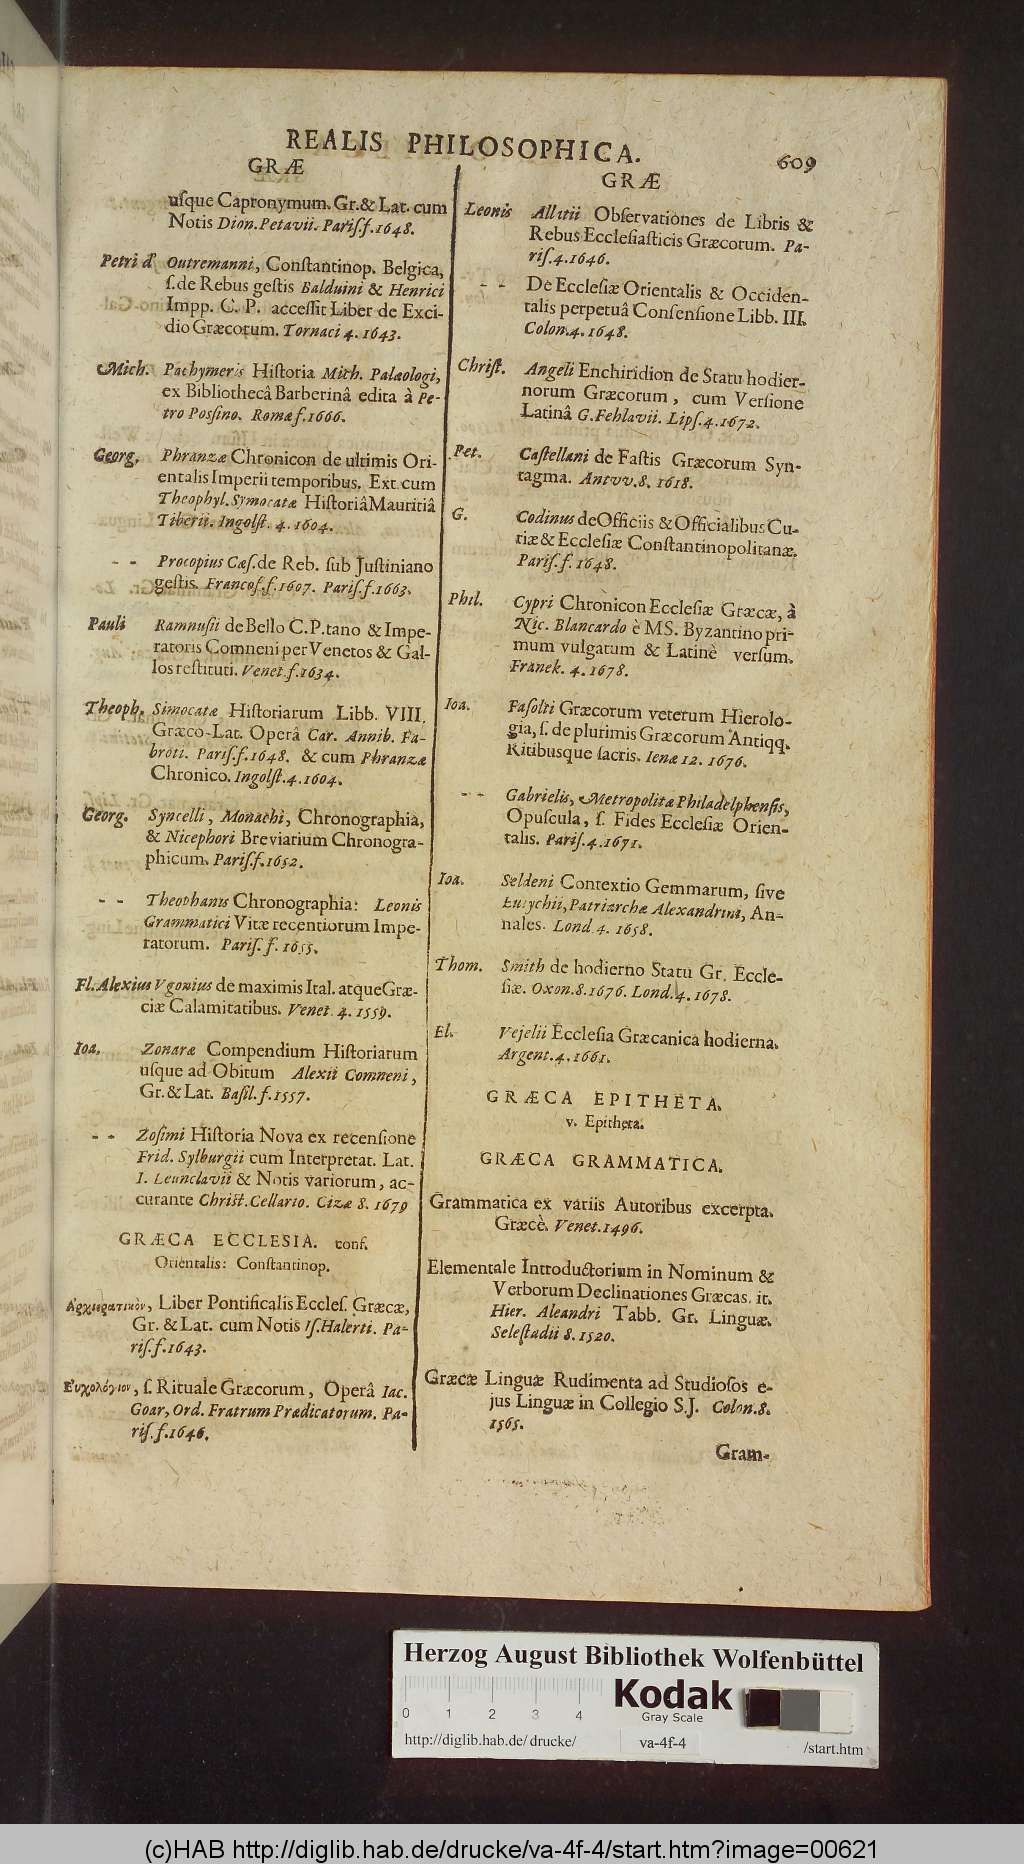 REALIS PHILOSOPHICA.
609
GRÆ
uſque Capronymum. Gr. & Lat. cum
Notis Dion. Petavii. Pariſ. f. 1648.
Petri d' Outremanni, Conſtantinop. Belgica,
ſ. de Rebus geſtis Balduini & Henrici
Impp. C. P. acceſſit Liber de Exci-
dio Græcorum. Tornaci 4. 1643.
Mich. Pachymeris Hiſtoria Mich. Palæologi,
ex Bibliothecâ Barberinâ edita à Pe-
tro Poſsino. Romæ f. 1666.
Georg. Phranzæ Chronicon de ultimis Ori-
entalis Imperii temporibus. Ext. cum
Theophyl. Symocatæ Hiſtoriâ Mauritiâ
Tiberii. Ingolſt. 4. 1604.
- - Procopius Cæſ. de Reb. ſub Juſtiniano
geſtis. Francof. f. 1607. Pariſ. f. 1663.
Pauli Ramnuſii de Bello C. P. tano & Impe-
ratoris Comneni per Venetos & Gal-
los reſtituti. Venet. f. 1634.
Theoph. Simocatæ Hiſtoriarum Libb. VIII.
Græco-Lat. Operâ Car. Annib. Fa-
broti. Pariſ. f. 1648. & cum Phranzæ
Chronico. Ingolſt. 4. 1604.
Georg. Syncelli, Monachi, Chronographia,
& Nicephori Breviarium Chronogra-
phicum. Pariſ. f. 1652.
- - Theophanis Chronographia: Leonis
Grammatici Vitæ recentiorum Impe-
ratorum. Pariſ. f. 1655.
Fl. Alexius Vgonius de maximis Ital. atque Græ-
ciæ Calamitatibus. Venet. 4. 1559.
Ioa. Zonaræ Compendium Hiſtoriarum
uſque ad Obitum Alexii Comneni,
Gr. & Lat. Baſil. f. 1557.
- - Zoſimi Hiſtoria Nova ex recenſione
Frid. Sylburgii cum Interpretat. Lat.
I. Leunclavii & Notis variorum, ac-
curante Chriſt. Cellario. Cizæ 8. 1679
GRÆCA ECCLESIA. conf.
Orientalis: Conſtantinop.
Ἀρχιερατικὸν, Liber Pontificalis Eccleſ. Græcæ,
Gr. & Lat. cum Notis Iſ. Halerti. Pa-
riſ. f. 1643.
Εὐχολόγιον, ſ. Rituale Græcorum, Operâ Iac.
Goar, Ord. Fratrum Prædicatorum. Pa-
riſ. f. 1646.
GRÆ
Leonis Allatii Obſervationes de Libris &
Rebus Eccleſiaſticis Græcorum. Pa-
riſ. 4. 1646.
- - De Eccleſiæ Orientalis & Occiden-
talis perpetuâ Conſenſione Libb. III.
Colon. 4. 1648.
Chriſt. Angeli Enchiridion de Statu hodier-
norum Græcorum, cum Verſione
Latinâ G. Fehlavii. Lipſ. 4. 1672.
Pet. Caſtellani de Faſtis Græcorum Syn-
tagma. Antvv. 8. 1618.
G. Codinus de Officiis & Officialibus Cu-
riæ & Eccleſiæ Conſtantinopolitanæ.
Pariſ. f. 1648.
Phil. Cypri Chronicon Eccleſiæ Græcæ, à
Nic. Blancardo è MS. Byzantino pri-
mum vulgatum & Latinè verſum.
Franek. 4. 1678.
Ioa. Faſolti Græcorum veterum Hierolo-
gia, ſ. de plurimis Græcorum Antiqq.
Ritibusque ſacris. Ienæ 12. 1676.
- - Gabrielis, Metropolitæ Philadelphenſis,
Opuſcula, ſ. Fides Eccleſiæ Orien-
talis. Pariſ. 4. 1671.
Ioa. Seldeni Contextio Gemmarum, ſive
Eutychii, Patriarchæ Alexandrini, An-
nales. Lond. 4. 1658.
Thom. Smith de hodierno Statu Gr. Eccle-
ſiæ. Oxon. 8. 1676. Lond. 4. 1678.
El. Vejelii Eccleſia Græcanica hodierna.
Argent. 4. 1661.
GRÆCA EPITHETA.
v. Epitheta.
GRÆCA GRAMMATICA.
Grammatica ex variis Autoribus excerpta.
Græcè. Venet. 1496.
Elementale Introductorium in Nominum &
Verborum Declinationes Græcas. it.
Hier. Aleandri Tabb. Gr. Linguæ.
Seleſtadii 8. 1520.
Græcæ Linguæ Rudimenta ad Studioſos e-
jus Linguæ in Collegio S. J. Colon. 8.
1565.
Gram-
Herzog August Bibliothek Wolfenbüttel
0 1 2 3 4
Kodak
Gray Scale
http://diglib.hab.de/drucke/ va-4f-4 /start.htm
(c)HAB http://diglib.hab.de/drucke/va-4f-4/start.htm?image=00621